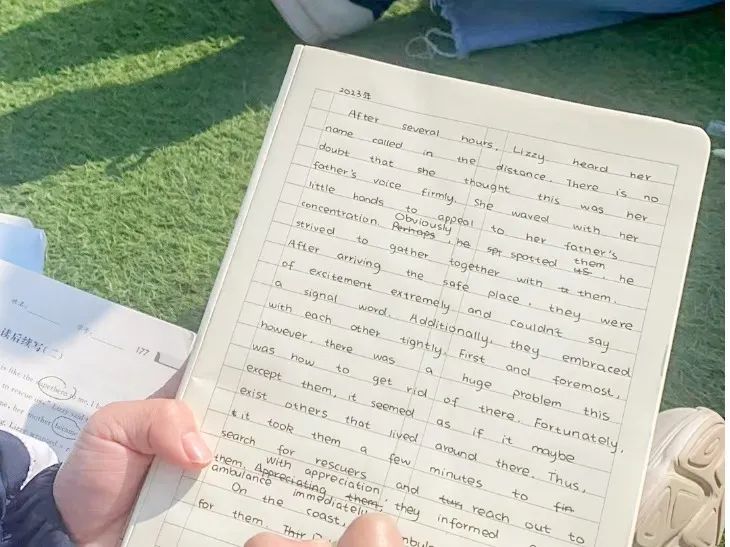 2023年
After several hours, Lizzy heard her
name called in the distance. There is no
doubt that she thought this was her
father's voice firmly. She waved with her
little hands to appeal to her father's
concentration. Obviously Perhaps, he spotted them us, he
strived to gather together with them.
After arriving the safe place, they were
of excitement extremely and couldn't say
a signal word. Additionally, they embraced
with each other tightly. First and foremost,
however, there was a huge problem this
was how to get rid of there. Fortunately,
except them, it seemed as if it maybe
exist others that lived around there. Thus,
it took them a few minutes to fin
search for rescuers and reach out to
them. Appreciating them, with appreciation, they informed
ambulance immediately
On the coast,
for them.
读后续写(二)
177
is like the superhero
to rescue
her mother because